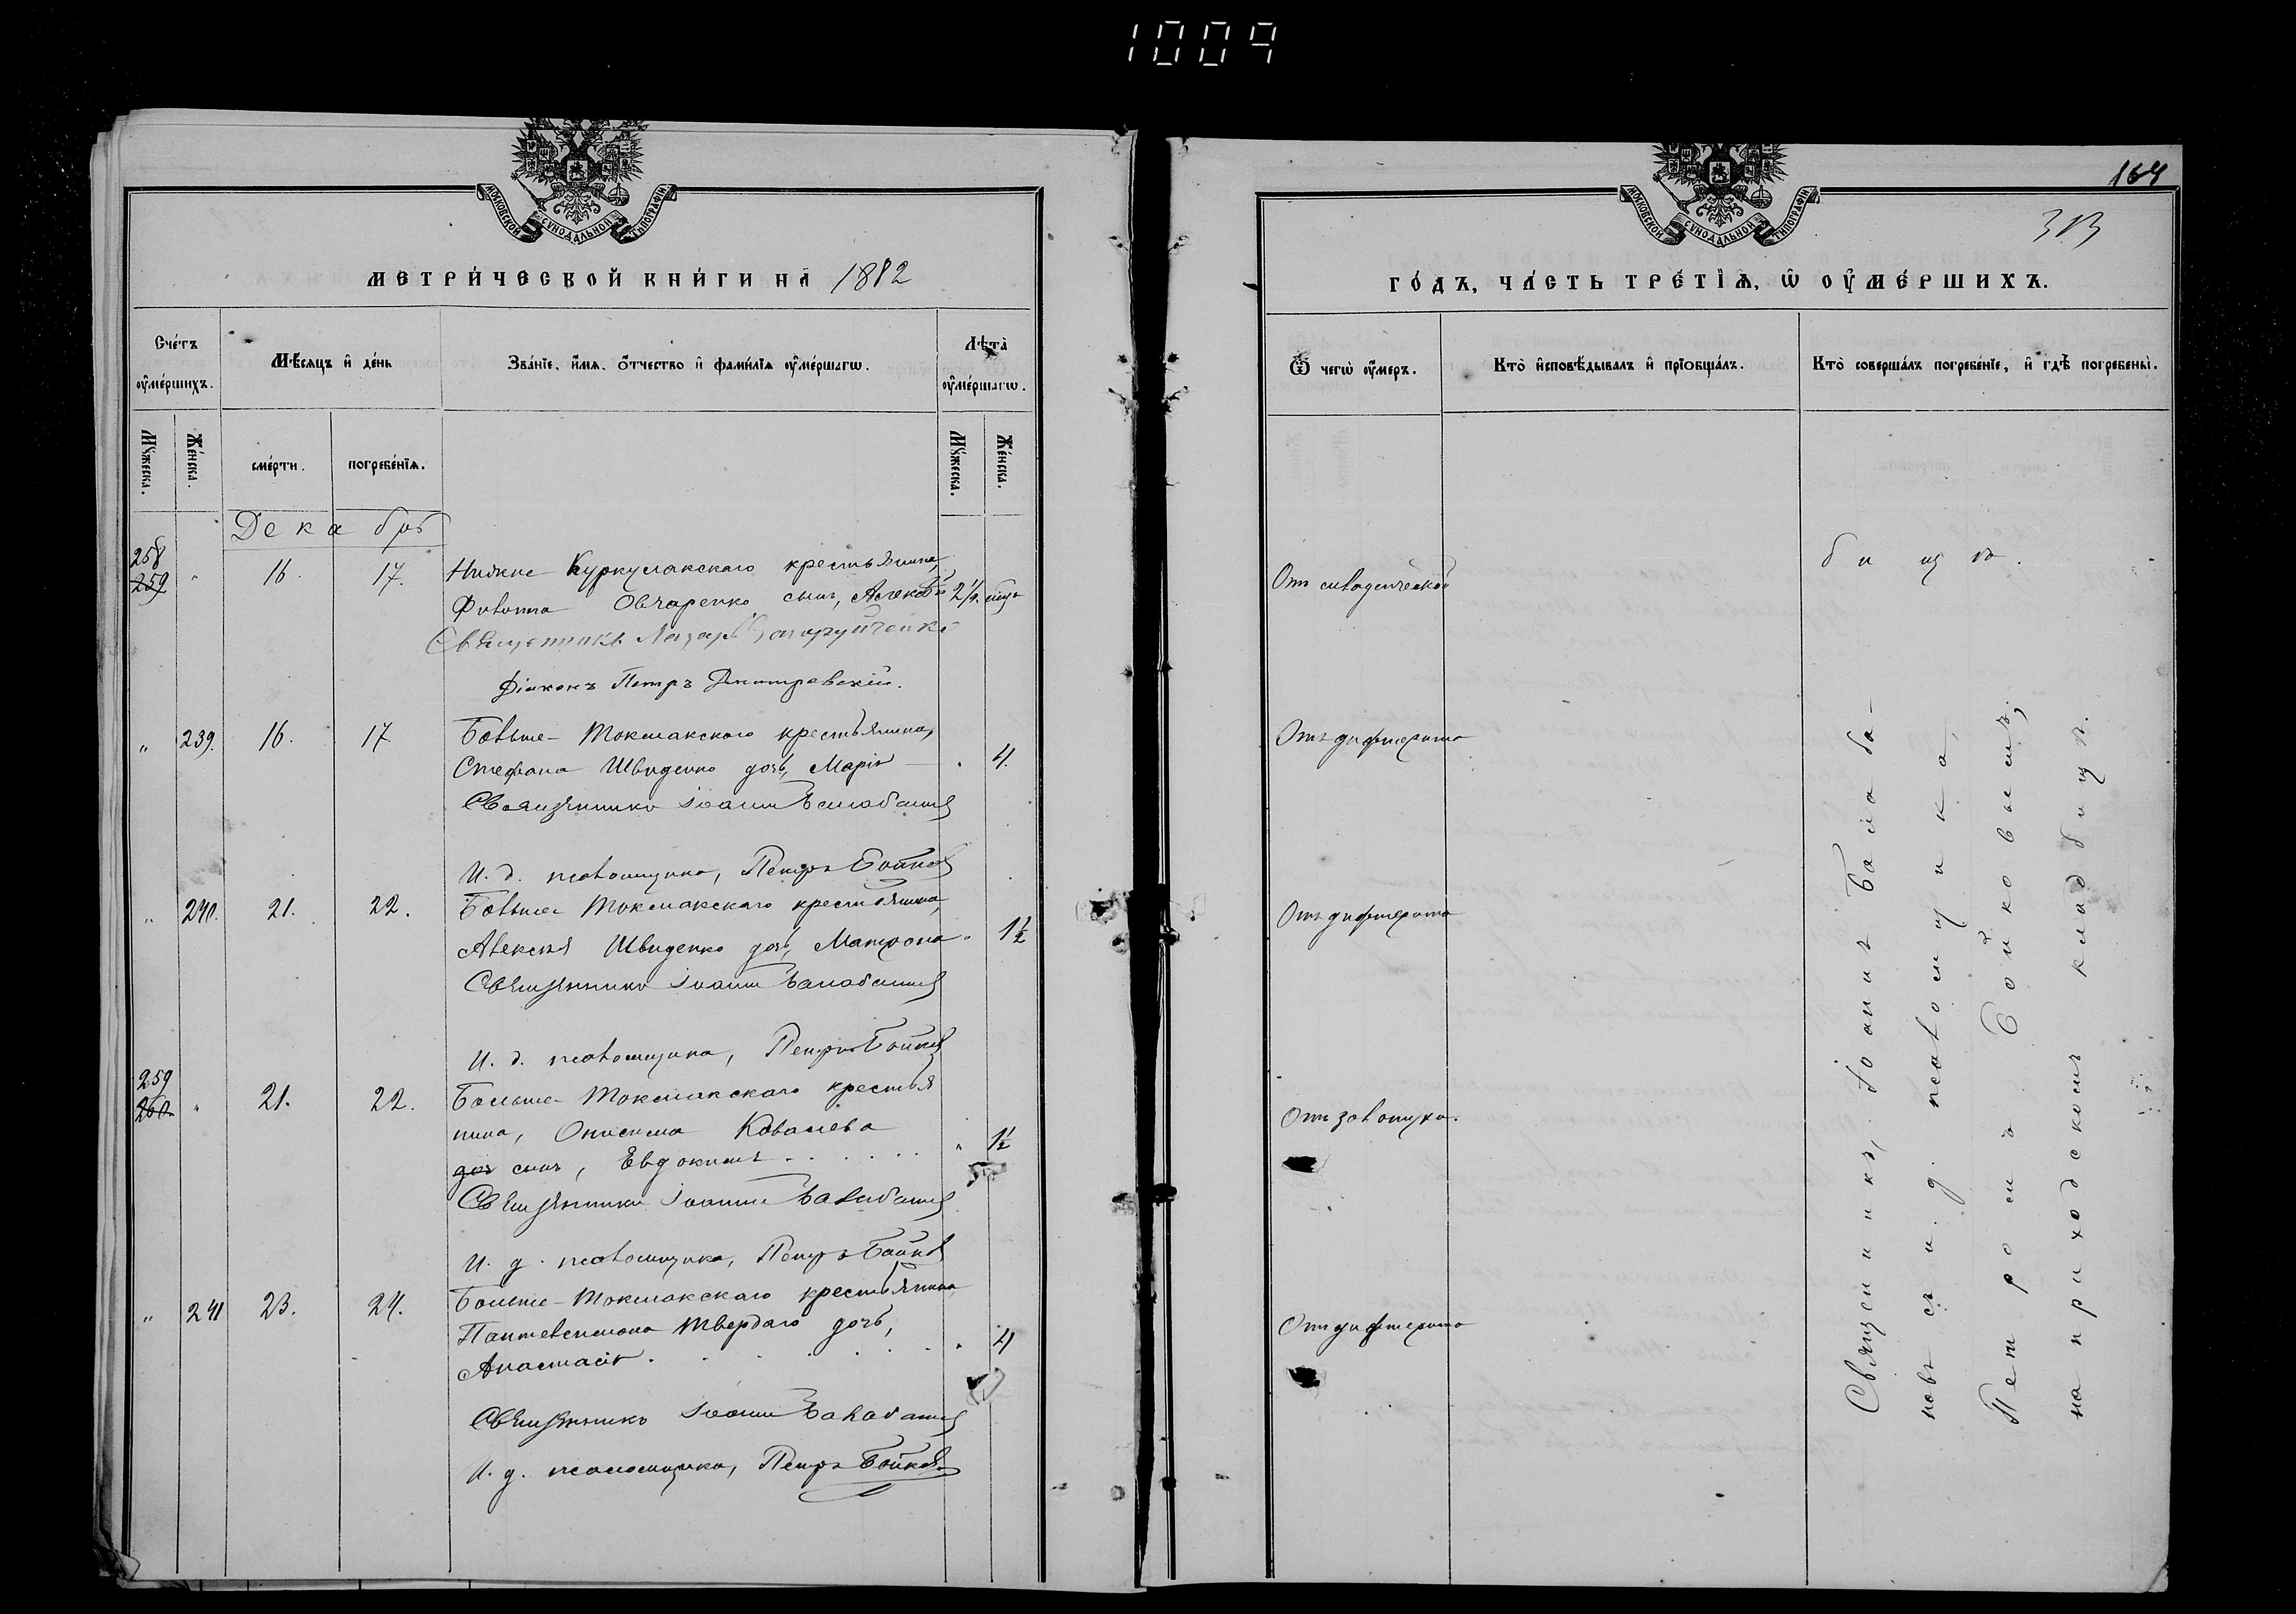 1009
МОСКОВСКОЙ СѴНОДАЛЬНОЙ ТИПОГРАФІИ
МЕТРИ́ЧЕСКОЙ КНИ́ГИ НА 1882
Сче́тъ ѹ҆ме́ршихъ.
Мѣ́сяцъ и҆ де́нь
Зва́нїе, и҆́мѧ, ѻ҆́тчество и҆ фами́лїѧ ѹ҆ме́ршагѡ.
Лѣта̀ ѹ҆ме́ршагѡ.
Мꙋ́жеска.
Же́нска.
сме́рти.
погребе́нїѧ.
Мꙋ́жеска.
Же́нска.
Декабрь
258
259 " 16. 17. Нижне-Куркулакскаго крестьянина,
Филиппа Овчаренко сынъ, Алексѣй 2 1/2 мѣс
Священникъ Лазарь
Діаконъ Петръ Дмитревскій.
" 239. 16. 17 Больше-Токмакскаго крестьянина,
Стефана Швиденко дочь, Марія — " 4.
Священникъ Іоаннъ Балабановъ
И. д. псаломщика, Петръ Бойковъ
" 240. 21. 22. Больше-Токмакскаго крестьянина,
Алексѣя Швиденко дочь, Матрона " 1½
Священникъ Іоаннъ Балабановъ
И. д. псаломщика, Петръ Бойковъ
259
260 " 21. 22. Больше-Токмакскаго крестья
нина, Онисима Ковалева " 1½
доч сынъ, Евдокимъ . . . . . .
Священникъ Іоаннъ Балабановъ
И. д. псаломщика, Петръ Бойковъ
" 241 23. 24. Больше-Токмакскаго крестьянина
Пантелеимона Твердаго дочь,
Анастасія . . . . . . " 4
Священникъ Іоаннъ Балабановъ
И. д. псаломщика, Петръ Бойковъ
164
313
МОСКОВСКОЙ СѴНОДАЛЬНОЙ ТИПОГРАФІИ
ГО́ДЪ, ЧА́СТЬ ТРЕ́ТЇѦ, Ѡ҆ ОУ҆МЕ́РШИХЪ.
Ѿ чегѡ̀ ѹ҆́меръ.
Кто̀ и҆сповѣ́дывалъ и҆ прїобща́лъ.
Кто̀ соверша́лъ погребе́нїе, и҆ гдѣ̀ погребены̀.
бищѣ.
Отъ дифтерита
Отъ дифтерита
Отъ золотухи.
Отъ дифтерита
Священникъ, Іоаннъ Балаба-
новъ съ и. д. псаломщика,
Петромъ Бойковымъ,
на приходскомъ кладбищѣ.